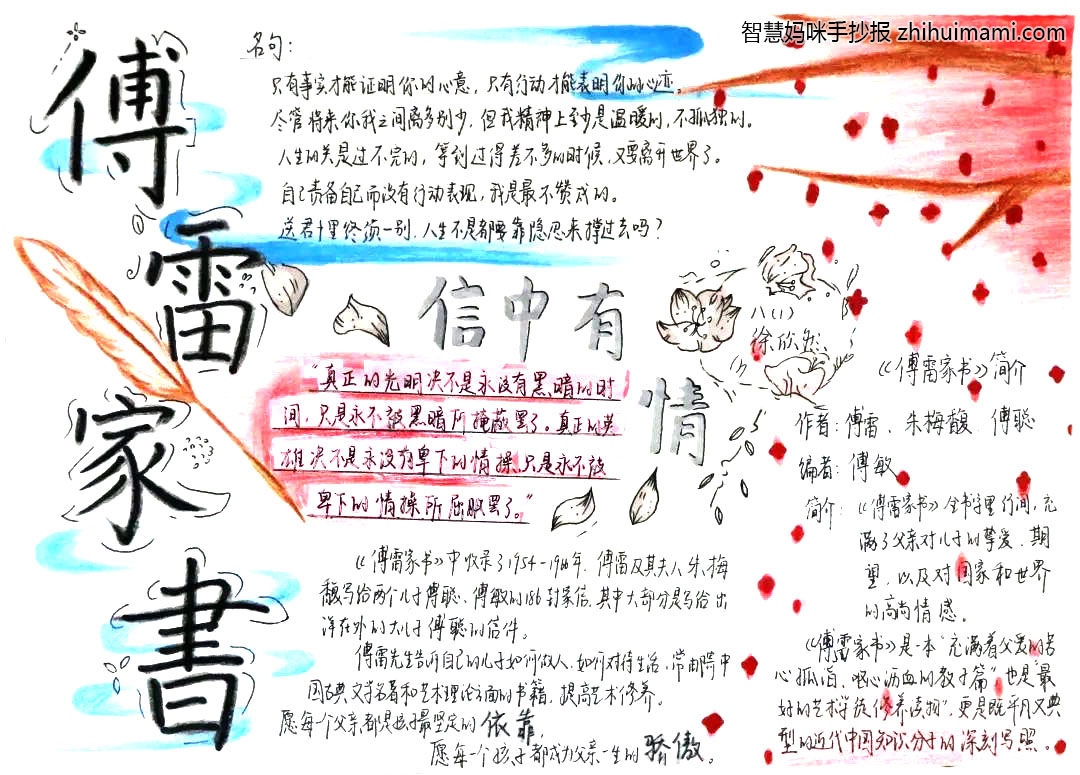 智慧妈咪手抄报 zhihuimami.com
傅雷家書
名句：
只有事实才能证明你的心意，只有行动才能表明你的心迹。
尽管将来你我之间离多别少，但我精神上至少是温暖的，不孤独的。
人生的关是过不完的，等到过得差不多的时候，又要离开世界了。
自己责备自己而没有行动表现，我是最不赞成的。
送君千里终须一别，人生不是都要靠隐忍来撑过去吗？
信中有
情
八（1）
徐欣然
“真正的光明决不是永没有黑暗的时
间，只是永不被黑暗所掩蔽罢了。真正的英
雄决不是永没有卑下的情操，只是永不被
卑下的情操所屈服罢了。”
《傅雷家书》简介
作者：傅雷、朱梅馥 傅聪
编者：傅敏
简介：《傅雷家书》全书字里行间，充
满了父亲对儿子的挚爱、期
望，以及对国家和世界
的高尚情感。
《傅雷家书》是一本“充满着父爱的苦
心孤诣、呕心沥血的教子篇”，也是“最
好的艺术学徒修养读物”，更是既平凡又典
型的近代中国知识分子的深刻写照。
《傅雷家书》中收录了1954-1966年，傅雷及其夫人朱梅
馥写给两个儿子傅聪、傅敏的186封家信，其中大部分是写给出
洋在外的大儿子傅聪的信件。
傅雷先生告诉自己的儿子如何做人，如何对待生活，常由聘中
国古典文学名著和艺术理论方面的书籍，提高艺术修养。
愿每个父亲都是孩子最坚定的依靠，
愿每一个孩子都成为父亲一生的骄傲。